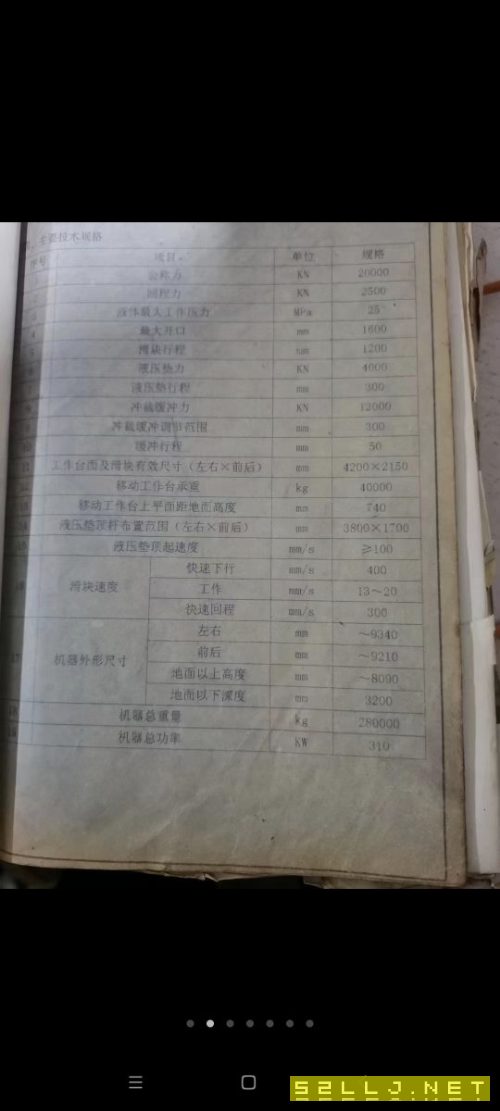 主要技术规格
序号 项目 单位 规格
公称力 KN 20000
回程力 KN 2500
液体最大工作压力 MPa 25
4 最大开口 mm 1600
滑块行程 mm 1200
液压垫力 KN 4000
液压垫行程 mm 300
冲裁缓冲力 KN 12000
冲裁缓冲调节范围 mm 300
缓冲行程 mm 50
工作台面及滑块有效尺寸(左右×前后) mm 4200×2150
移动工作台承重 kg 40000
移动工作台上平面距地面高度 mm 740
液压垫顶杆布置范围(左右×前后) mm 3800×1700
液压垫顶起速度 mm/s ≥100
滑块速度 快速下行 mm/s 400
工作 mm/s 13~20
快速回程 mm/s 300
机器外形尺寸 左右 mm ~9340
前后 mm ~9210
地面以上高度 mm ~8090
地面以下深度 mm 3200
机器总重量 kg 280000
机器总功率 KW 310
52LLJ.NET